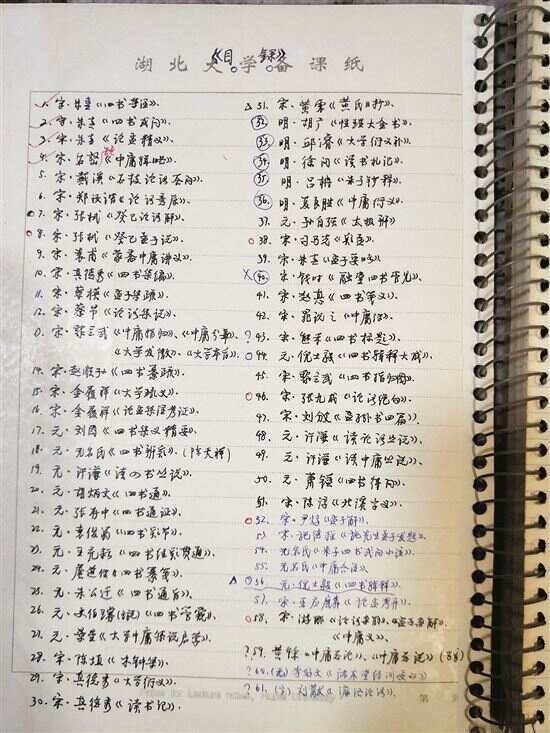 湖北大学备课纸
《目录》
1. 宋·朱熹《四书集注》.
2. 宋·朱熹《四书或问》.
3. 宋·朱熹《论孟精义》.
4. 宋·石𡼖《中庸辑略》.
5. 宋·戴溪《石鼓论语答问》.
6. 宋·郑汝谐《论语意原》.
7. 宋·张栻《癸巳论语解》.
8. 宋·张栻《癸巳孟子说》.
9. 宋·袁甫《蒙斋中庸讲义》.
10. 宋·真德秀《四书集编》.
11. 宋·蔡模《孟子集疏》.
12. 宋·蔡节《论语集说》.
13. 宋·黎立武《中庸指归》、《中庸分章》、
《大学发微》、《大学本旨》.
14. 宋·赵顺孙《四书纂疏》.
15. 宋·金履祥《大学疏义》.
16. 宋·金履祥《论孟集注考证》.
17. 元·刘因《四书集义精要》.
18. 元·无名氏《四书辨疑》.(陈天祥)
19. 元·许谦《读四书丛说》.
20. 元·胡炳文《四书通》.
21. 元·张存中《四书通证》.
22. 元·袁俊翁《四书疑节》.
23. 元·王充耘《四书经疑贯通》.
24. 元·詹道传《四书纂笺》.
25. 元·朱公迁《四书通旨》.
26. 元·史伯璿《四书管窥》.
27. 元·景星《大学中庸集说启蒙》.
28. 宋·陈埴《木钟集》.
29. 宋·真德秀《大学衍义》.
30. 宋·真德秀《读书记》.
31. 宋·黄震《黄氏日抄》.
32. 明·胡广《性理大全书》.
33. 明·邱濬《大学衍义补》.
34. 明·徐问《读书札记》.
35. 明·吕柟《朱子抄释》.
36. 明·夏良胜《中庸衍义》.
37. 元·孙自强《太极解》
38. 宋·司马光《疑孟》.
39. 宋·朱熹《孟子要略》.
40. 宋·钱时《融堂四书管见》.
41. 宋·赵惪《四书笺义》.
42. 宋·晁说之《中庸传》.
43. 宋·熊禾《四书标题》.
44. 元·倪士毅《四书辑释大成》.
45. 宋·黎立武《四书指归图》.
46. 宋·张九成《论语绝句》.
47. 宋·刘敞
48. 元·许谦《读论语丛说》.
49. 元·许谦《读中庸丛说》.
50. 元·萧镒《四书待问》.
51. 宋·陈淳《北溪字义》.
52. 宋·尹焞《孟子解》.
53. 宋·施德操《施先生孟子发题》.
54. 无名氏《朱子四书或问小注》.
55. 无名氏《中庸合注》.
56. 元·倪士毅《四书辑释》.
57. 宋·王应麟《论孟考异》.
58. 宋·游酢《论语杂解》、《孟子杂解》、
《中庸义》.
59. 黄榦《中庸总论》、《中庸总说》
60. (元) 李
61. (宋) 刘